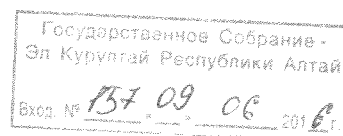 Государственное Собрание -
Эл Курултай Республики Алтай
Вход. № 157 " 09 " 06 2016 г.